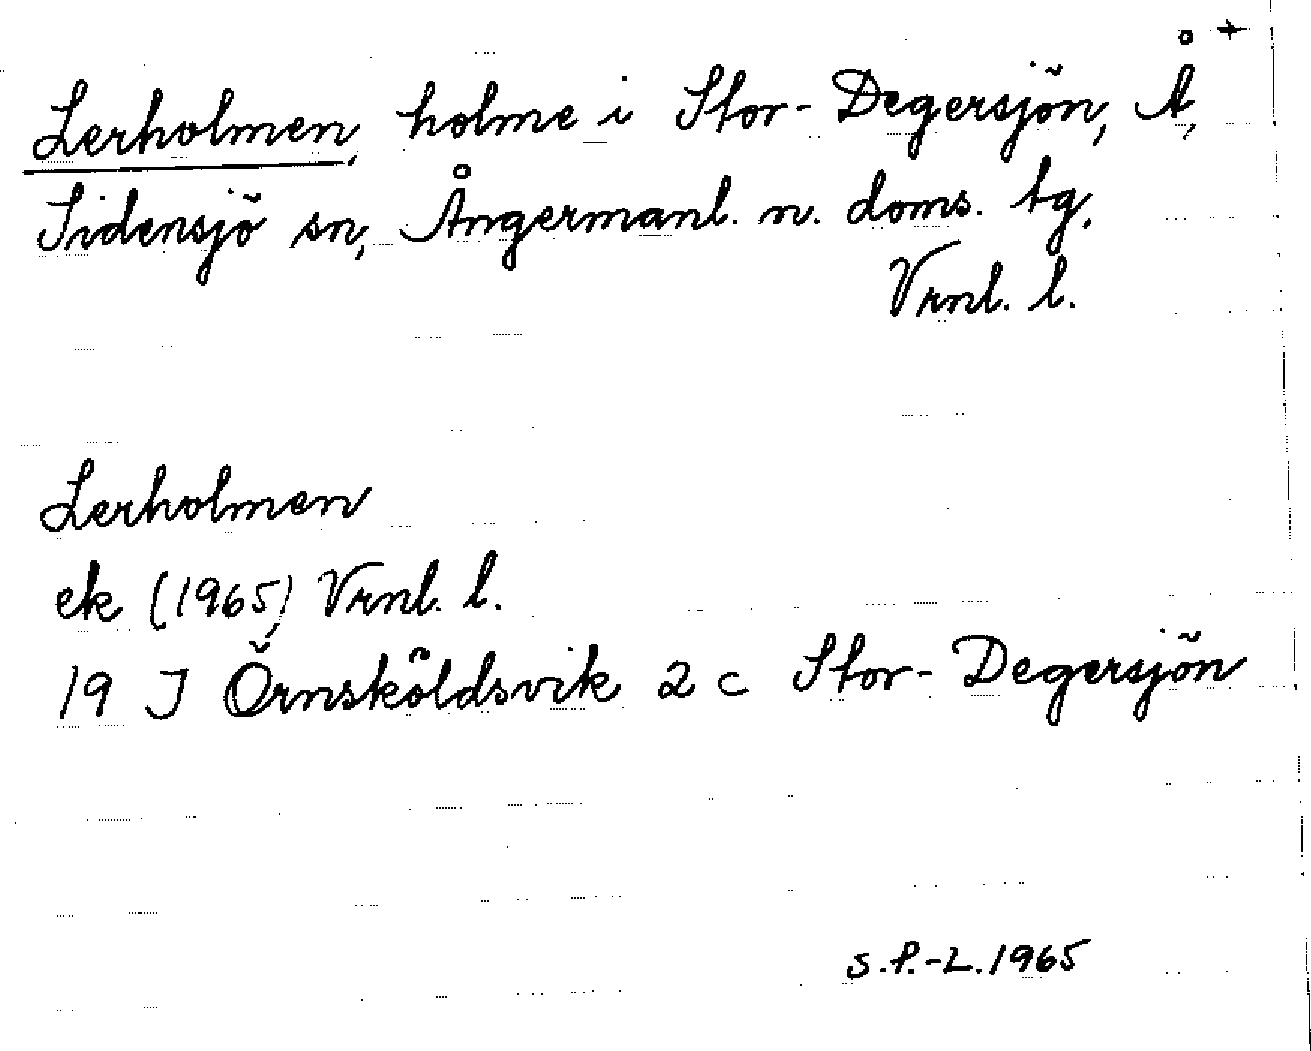 Lerholmen, holme i Stor-Degersjön, Å, +
Sidensjö sn, Ångermanl. n. doms. tg.
Vrnl. l.
Lerholmen
ek (1965) Vrnl. l.
19 J Örnsköldsvik 2 c Stor-Degersjön
S.P.-L. 1965